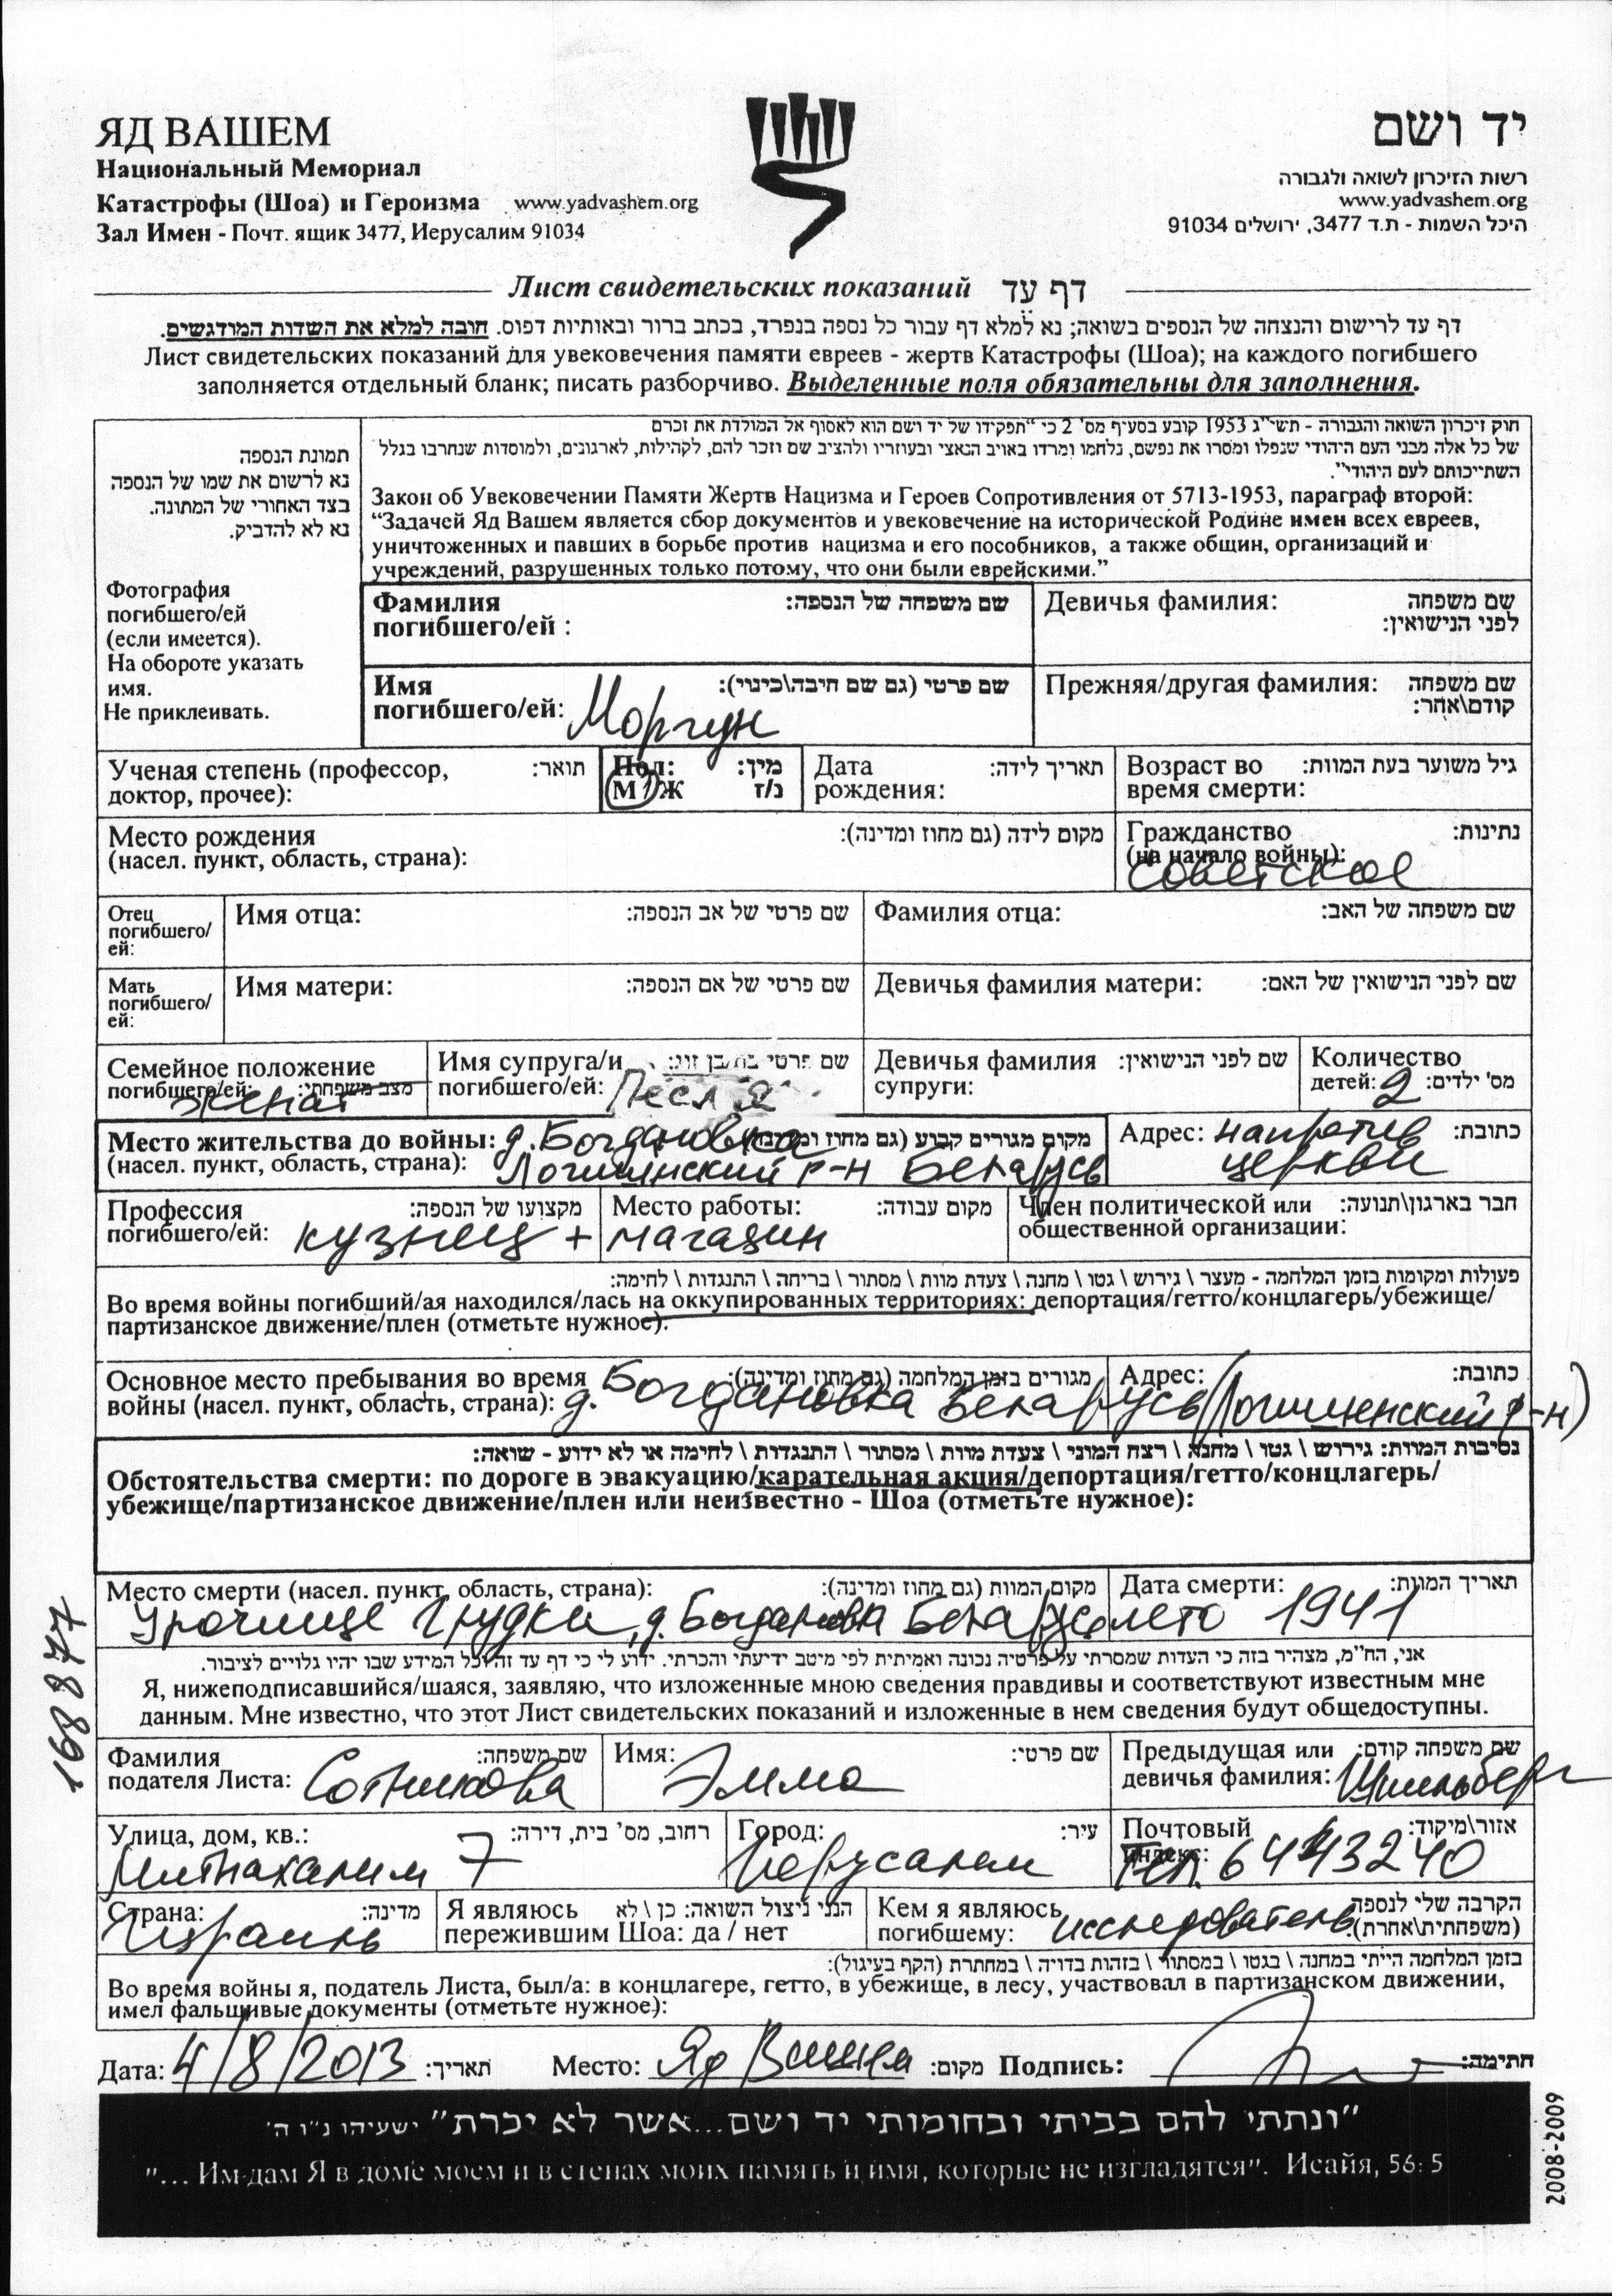 ЯД ВАШЕМ
Национальный Мемориал
Катастрофы (Шоа) и Героизма www.yadvashem.org
Зал Имен - Почт. ящик 3477, Иерусалим 91034
יד ושם
רשות הזיכרון לשואה ולגבורה
www.yadvashem.org
היכל השמות - ת.ד 3477, ירושלים 91034
Лист свидетельских показаний דף עד
דף עד לרישום והנצחה של הנספים בשואה; נא למלא דף עבור כל נספה בנפרד, בכתב ברור ובאותיות דפוס. חובה למלא את השדות המודגשים.
Лист свидетельских показаний для увековечения памяти евреев - жертв Катастрофы (Шоа); на каждого погибшего
заполняется отдельный бланк; писать разборчиво. Выделенные поля обязательны для заполнения.
תמונת הנספה
נא לרשום את שמו של הנספה
בצד האחורי של המתונה.
נא לא להדביק.
Фотография
погибшего/ей
(если имеется).
На обороте указать
имя.
Не приклеивать.
חוק זיכרון השואה והגבורה - תשי"ג 1953 קובע בסעיף מס' 2 כי "תפקידו של יד ושם הוא לאסוף אל המולדת את זכרם
של כל אלה מבני העם היהודי שנפלו ומסרו את נפשם, נלחמו ומרדו באויב הנאצי ובעוזריו ולהציב שם וזכר להם, לקהילות, לארגונים, ולמוסדות שנחרבו בגלל
השתייכותם לעם היהודי".
Закон об Увековечении Памяти Жертв Нацизма и Героев Сопротивления от 5713-1953, параграф второй:
“Задачей Яд Вашем является сбор документов и увековечение на исторической Родине имен всех евреев,
уничтоженных и павших в борьбе против нацизма и его пособников, а также общин, организаций и
учреждений, разрушенных только потому, что они были еврейскими.”
Фамилия שם משפחה של הנספה:
погибшего/ей :
Девичья фамилия: שם משפחה
לפני הנישואין:
Имя שם פרטי (גם שם חיבה\כינוי):
погибшего/ей: Моргун
Прежняя/другая фамилия: שם משפחה
קודם\אחר:
Ученая степень (профессор, תואר:
доктор, прочее):
Пол: מין:
М / Ж נ/ז
Дата תאריך לידה:
рождения:
Возраст во גיל משוער בעת המוות:
время смерти:
Место рождения מקום לידה (גם מחוז ומדינה):
(насел. пункт, область, страна):
Гражданство נתינות:
(на начало войны):
советское
Отец
погибшего/
ей:
Имя отца: שם פרטי של אב הנספה:
Фамилия отца: שם משפחה של האב:
Мать
погибшего/
ей:
Имя матери: שם פרטי של אם הנספה:
Девичья фамилия матери: שם לפני הנישואין של האם:
Семейное положение
погибшего/ей: מצב משפחתי:
женат
Имя супруга/и שם פרטי בת/בן זוג:
погибшего/ей: Песля
Девичья фамилия שם לפני הנישואין:
супруги:
Количество
детей: 2 מס' ילדים:
Место жительства до войны: д. Богдановка מקום מגורים קבוע (גם מחוז ומדינה)
(насел. пункт, область, страна): Логишинский р-н Беларусь
Адрес: напротив כתובת:
церкви
Профессия מקצועו של הנספה:
погибшего/ей: кузнец +
Место работы: מקום עבודה:
магазин
Член политической или חבר בארגון\תנועה:
общественной организации:
פעולות ומקומות בזמן המלחמה - מעצר \ גירוש \ גטו \ מחנה \ צעדת מוות \ מסתור \ בריחה \ התנגדות \ לחימה:
Во время войны погибший/ая находился/лась на оккупированных территориях: депортация/гетто/концлагерь/убежище/
партизанское движение/плен (отметьте нужное).
Основное место пребывания во время מגורים בזמן המלחמה (גם מחוז ומדינה):
войны (насел. пункт, область, страна): д. Богдановка Беларусь
Адрес: כתובת:
(Логишенский р-н)
נסיבות המוות: גירוש \ גטו \ מחנה \ רצח המוני \ צעדת מוות \ מסתור \ התנגדות \ לחימה או לא ידוע - שואה:
Обстоятельства смерти: по дороге в эвакуацию/карательная акция/депортация/гетто/концлагерь/
убежище/партизанское движение/плен или неизвестно - Шоа (отметьте нужное):
Место смерти (насел. пункт, область, страна): מקום המוות (גם מחוז ומדינה):
Урочище Грудки, д. Богдановка Беларусь
Дата смерти: תאריך המוות:
лето 1941
אני, הח"מ, מצהיר בזה כי העדות שמסרתי על פרטיה נכונה ואמיתית לפי מיטב ידיעתי והכרתי. ידוע לי כי דף עד זה וכל המידע שבו יהיו גלויים לציבור.
Я, нижеподписавшийся/шаяся, заявляю, что изложенные мною сведения правдивы и соответствуют известным мне
данным. Мне известно, что этот Лист свидетельских показаний и изложенные в нем сведения будут общедоступны.
Фамилия שם משפחה:
подателя Листа: Сотникова
Имя: שם פרטי:
Эмма
Предыдущая или שם משפחה קודם:
девичья фамилия: Шпильберг
Улица, дом, кв.: רחוב, מס' בית, דירה:
Митнахалим 7
Город: עיר:
Иерусалем
Почтовый אזור\מיקוד:
индекс:
Тел. 6443240
Страна: מדינה:
Израиль
Я являюсь הנני ניצול השואה: כן \ לא
пережившим Шоа: да / нет
Кем я являюсь הקרבה שלי לנספה
погибшему: исследователь (משפחתית\אחרת):
בזמן המלחמה הייתי במחנה \ בגטו \ במסתור \ בזהות בדויה \ במחתרת (הקף בעיגול):
Во время войны я, податель Листа, был/а: в концлагере, гетто, в убежище, в лесу, участвовал в партизанском движении,
имел фальшивые документы (отметьте нужное):
Дата: 4/8/2013 תאריך: Место: Яд Вашем מקום: Подпись: חתימה:
"ונתתי להם בביתי ובחומותי יד ושם...אשר לא יכרת" ישעיהו נ"ו ה'
"... Им дам Я в доме моем и в стенах моих память и имя, которые не изгладятся". Исайя, 56: 5
168877
2008-2009